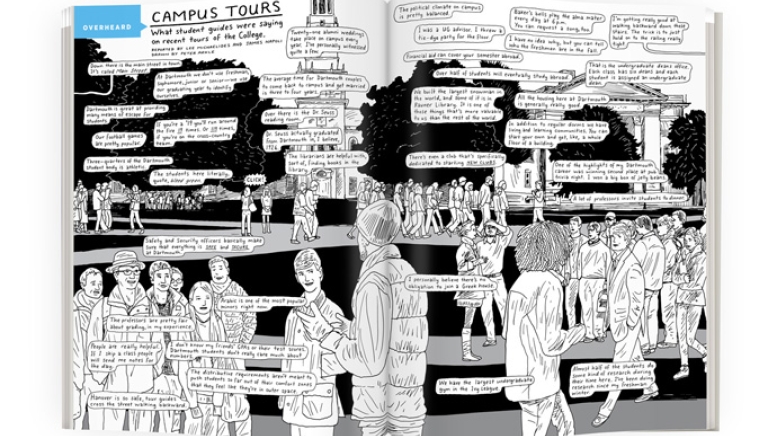 OVERHEARD
CAMPUS TOURS
What student guides were saying
on recent tours of the College.
Down there is the main street in town.
It's called Main Street.
At Dartmouth we don't use freshman,
sophomore, junior or senior—we use
our graduating year to identify
ourselves.
Dartmouth is great at providing
many means of escape for
students.
Our football games
are pretty popular.
If you're a '19 you'll run around
the fire 119 times. Or 219 times,
if you're on the cross-country
team.
Three-quarters of the Dartmouth
student body is athletic.
The students here literally,
quote,
CLICK!
Twenty-one alumni weddings
take place on campus every
year. I've personally witnessed
quite a few.
The average time for Dartmouth couples
to come back to campus and get married
is three to four years.
Over there is the Dr. Seuss
reading room.
Dr. Seuss actually graduated
from Dartmouth in, I believe,
1926.
The librarians are helpful with,
sort of, finding books in the
library.
Safety and Security officers basically make
sure that everything is SAFE and SECURE
at Dartmouth.
Arabic is one of the most popular
minors right now.
The professors are pretty fair
about grading, in my experience.
People are really helpful.
If I skip a class people
will send me notes for
the day.
I don't know my friends' GPAs or their test scores.
Dartmouth students don't really care much about
numbers.
The distributive requirements aren't meant to
push students so far out of their comfort zones
that they feel like they're in outer space.
Hanover is so safe, tour guides
cross the street walking backward.
The political climate on campus
is pretty balanced.
I was a UG advisor. I threw a
tie-dye party for the floor.
Financial aid can cover your semester abroad.
Over half of students will eventually study abroad.
We built the largest snowman in
the world, and some of it is in
Rauner Library. It is one of
those things that's more valuable
to us than the rest of the world.
There's even a club that's specifically
dedicated to starting NEW CLUBS.
Baker's bells play the alma mater
every day at 6 p.m.
You can request a song, too.
I have no idea why, but you can tell
who the freshmen are in the fall.
I'm getting really good at
walking backward down these
stairs. The trick is to just
hold on to the railing really
tight.
That is the undergraduate deans office.
Each class has six deans and each
student is assigned to an undergraduate
dean.
All the housing here at Dartmouth
is generally really good.
In addition to regular dorms we have
living and learning communities. You can
start your own and get, like, a whole
floor of a building.
One of the highlights of my Dartmouth
career was winning second place at pub
trivia night. I won a big box of jelly beans.
A lot of professors invite students to dinner.
I personally believe there's no
obligation to join a Greek house.
We have the largest undergraduate
gym in the Ivy League.
Almost half of the students do
some kind of research during
their time here. I've been doing
research since my freshman
winter.